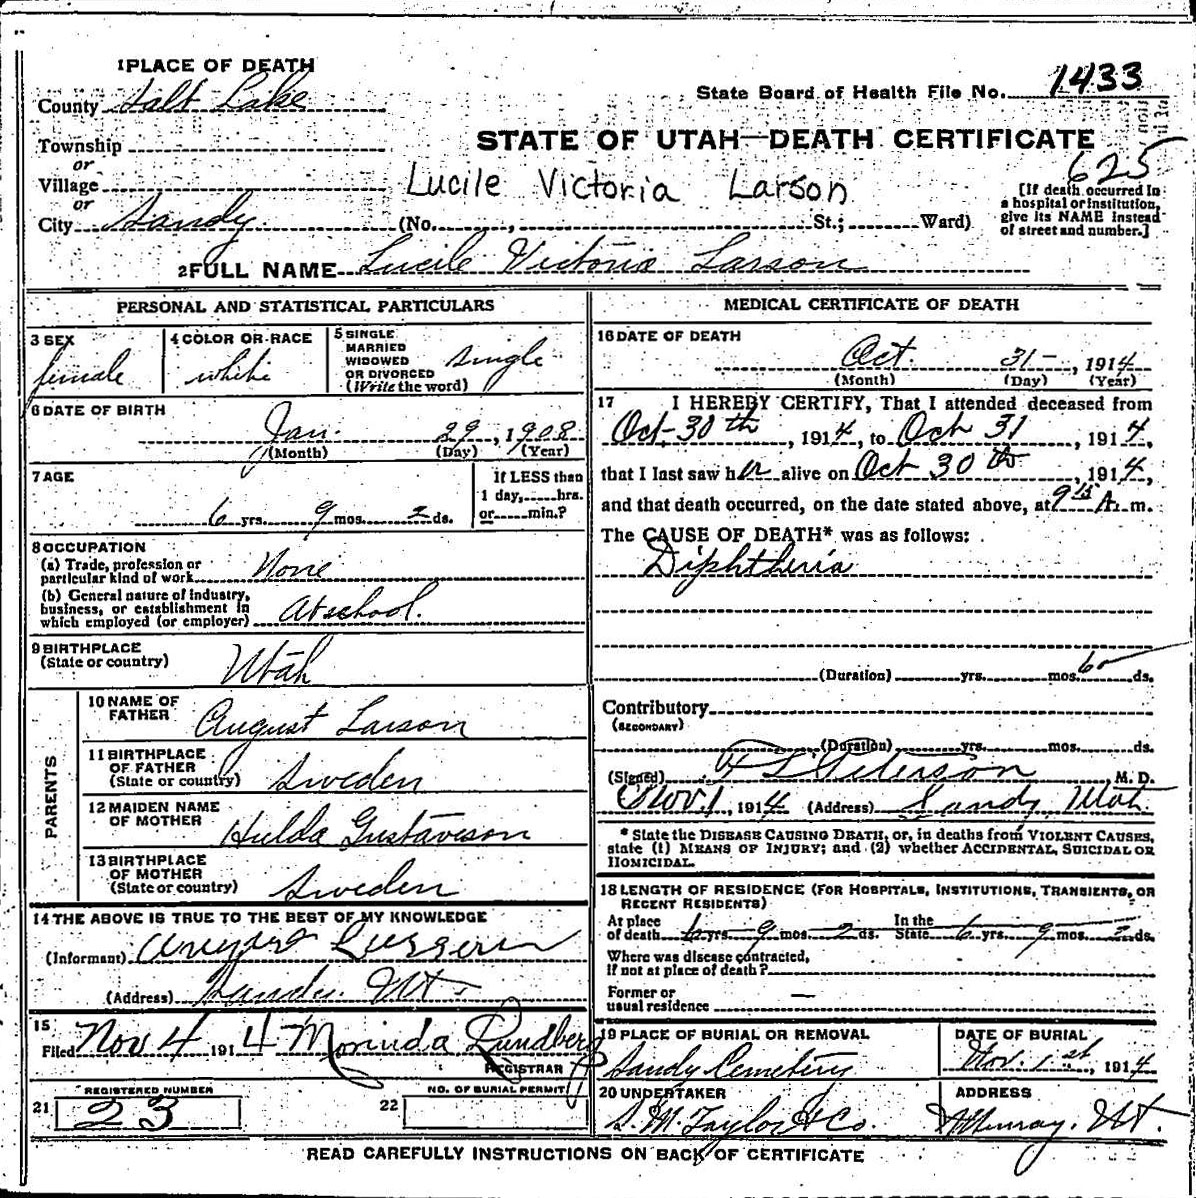 1 PLACE OF DEATH
County Salt Lake
State Board of Health File No. 1433
Township
STATE OF UTAH—DEATH CERTIFICATE
or
625
Village
Lucile Victoria Larson
or
City Sandy (No. , St.; Ward)
[If death occurred in
a hospital or institution,
give its NAME instead
of street and number.]
2 FULL NAME Lucile Victoria Larson
PERSONAL AND STATISTICAL PARTICULARS
3 SEX female
4 COLOR OR RACE white
5 SINGLE
MARRIED
WIDOWED
OR DIVORCED
(Write the word) single
6 DATE OF BIRTH
Jan. 29, 1908
(Month) (Day) (Year)
7 AGE
6 yrs. 9 mos. 2 ds.
If LESS than
1 day, hrs.
or min.?
8 OCCUPATION
(a) Trade, profession or
particular kind of work None
(b) General nature of industry,
business, or establishment in
which employed (or employer) At school.
9 BIRTHPLACE
(State or country) Utah
PARENTS
10 NAME OF
FATHER August Larson
11 BIRTHPLACE
OF FATHER
(State or country) Sweden
12 MAIDEN NAME
OF MOTHER Hulda Gustaveson
13 BIRTHPLACE
OF MOTHER
(State or country) Sweden
14 THE ABOVE IS TRUE TO THE BEST OF MY KNOWLEDGE
(Informant) August
(Address) Sandy Ut.
15
Filed Nov 4 1914 Morinda Lundberg
REGISTRAR
REGISTERED NUMBER
21 23
NO. OF BURIAL PERMIT
22
MEDICAL CERTIFICATE OF DEATH
16 DATE OF DEATH
Oct. 31-, 1914
(Month) (Day) (Year)
17 I HEREBY CERTIFY, That I attended deceased from
Oct 30th, 1914, to Oct 31, 1914,
that I last saw her alive on Oct 30th, 1914,
and that death occurred, on the date stated above, at 9 15 A. m.
The CAUSE OF DEATH* was as follows:
Diphtheria
(Duration) yrs. mos. ds.
Contributory
(SECONDARY)
(Duration) yrs. mos. ds.
(Signed) Peterson, M. D.
Nov. 1, 1914 (Address) Sandy, Utah.
* State the DISEASE CAUSING DEATH, or, in deaths from VIOLENT CAUSES,
state (1) MEANS OF INJURY; and (2) whether ACCIDENTAL, SUICIDAL OR
HOMICIDAL.
18 LENGTH OF RESIDENCE (FOR HOSPITALS, INSTITUTIONS, TRANSIENTS, OR
RECENT RESIDENTS)
At place
of death 6 yrs. 9 mos. 2 ds.
In the
State 6 yrs. 9 mos. 2 ds.
Where was disease contracted,
if not at place of death?
Former or
usual residence —
19 PLACE OF BURIAL OR REMOVAL
Sandy Cemetery
DATE OF BURIAL
Nov. 1st, 1914
20 UNDERTAKER
S. M. Taylor & Co.
ADDRESS
Murray, Ut.
READ CAREFULLY INSTRUCTIONS ON BACK OF CERTIFICATE